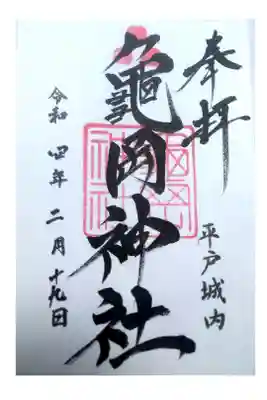 奉拝
平戸城内
亀岡神社
令和四年二月十九日